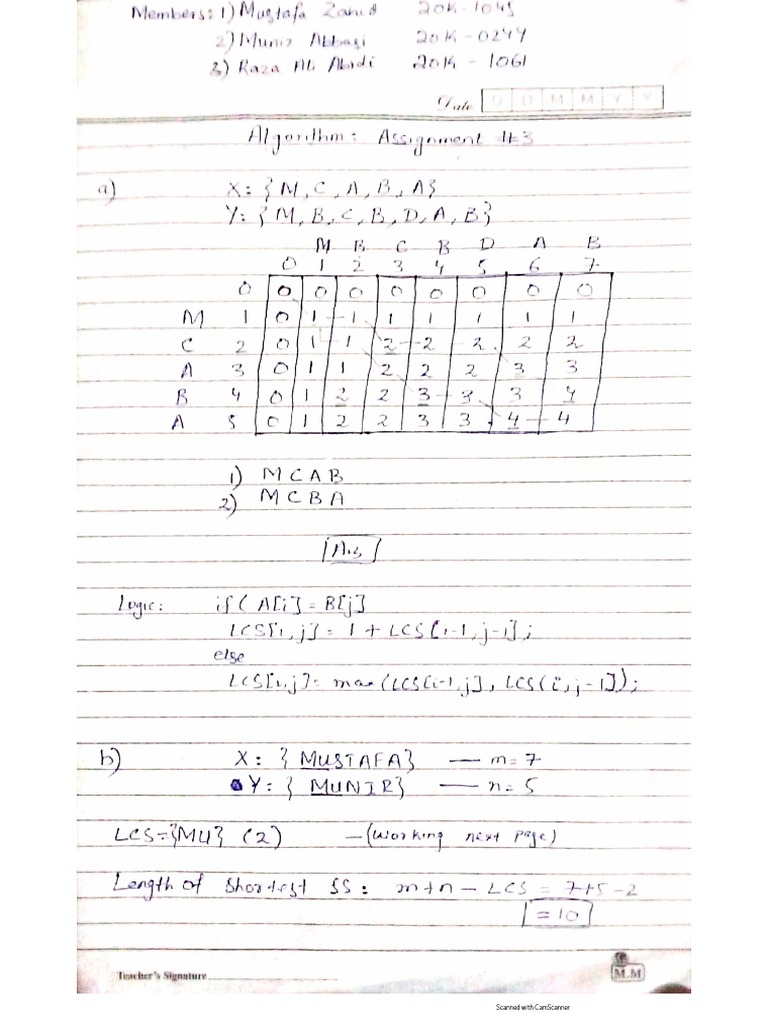 Members: 1) Mustafa Zahid 20K-1045
2) Munir Abbasi 20K-0244
3) Raza Ali Abidi 20K-1061
Date D D M M Y Y
Algorithm: Assignment #3
a) X: {M, C, A, B, A}
Y: {M, B, C, B, D, A, B}
M B C B D A B
0 1 2 3 4 5 6 7
0 0 0 0 0 0 0 0 0
M 1 0 1 1 1 1 1 1 1
C 2 0 1 1 2 2 2 2 2
A 3 0 1 1 2 2 2 3 3
B 4 0 1 2 2 3 3 3 4
A 5 0 1 2 2 3 3 4 4
1) MCAB
2) MCBA
Ans
Logic: if( A[i] = B[j]
LCS[i,j] = 1 + LCS[i-1, j-1];
else
LCS[i,j] = max(LCS[i-1,j], LCS(i, j-1]);
b) X: { MUSTAFA} — m=7
Y: { MUNIR} — n=5
LCS={MU} (2) — (working next page)
Length of Shortest SS: m+n - LCS = 7+5-2
=10
Teacher's Signature
M.M
Scanned with CamScanner